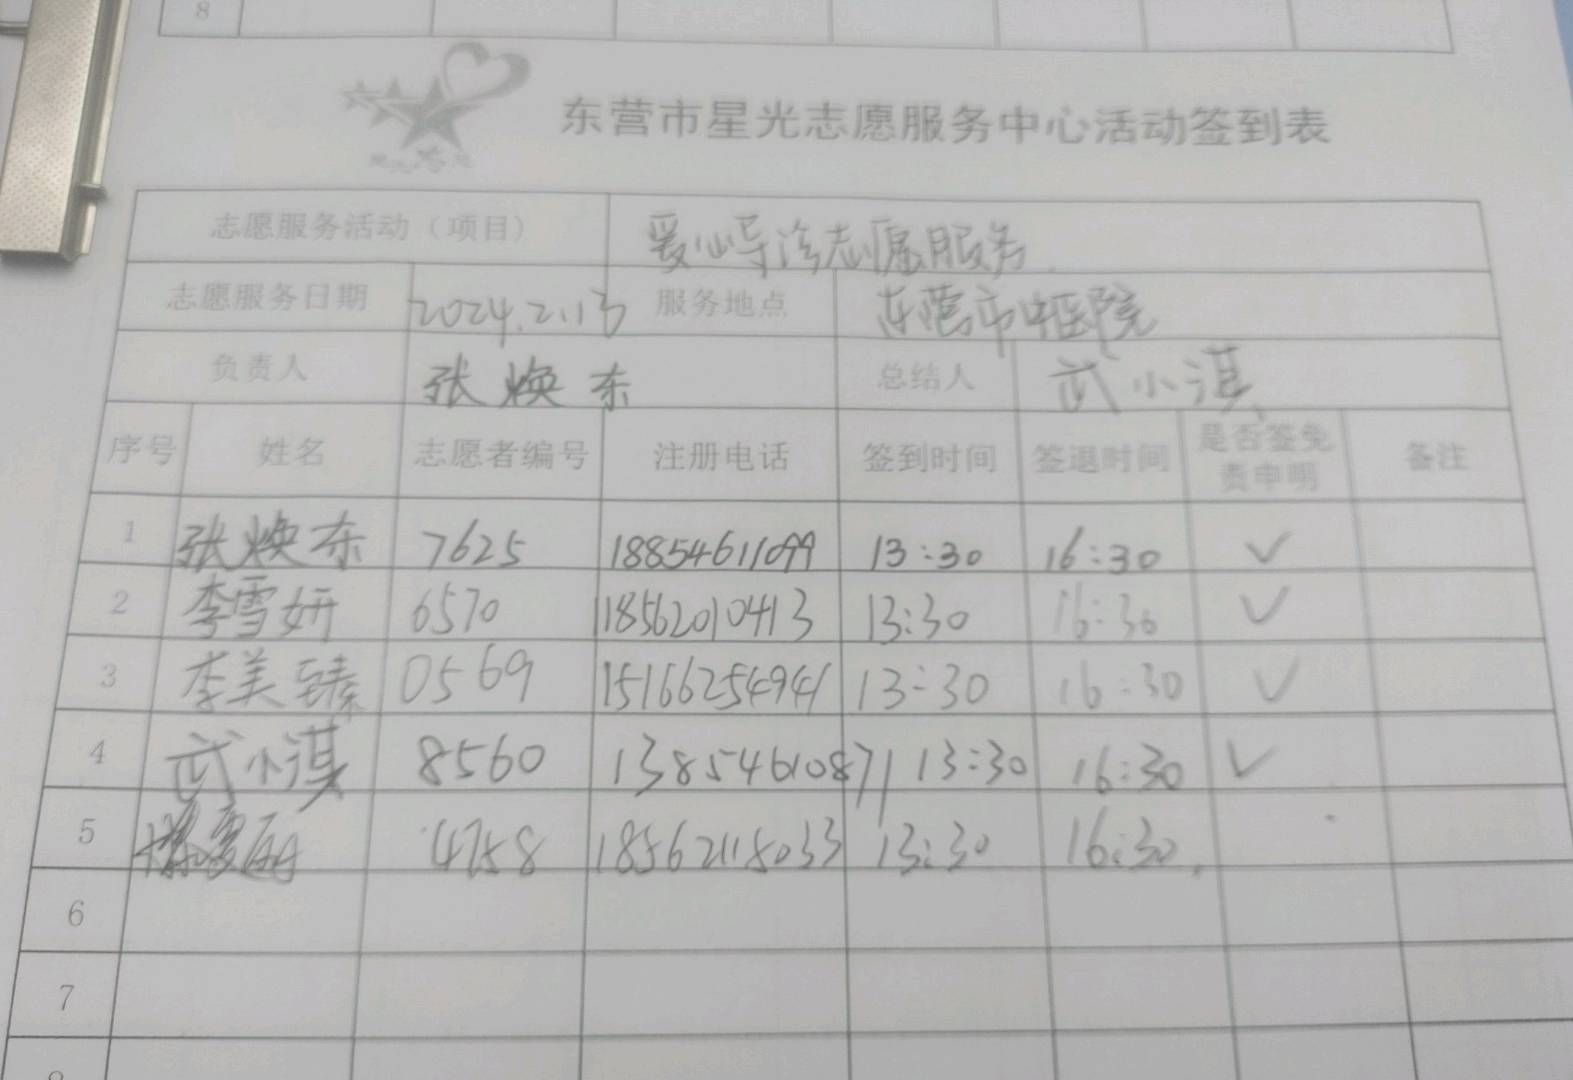 8
东营市星光志愿服务中心活动签到表
志愿服务活动（项目） 爱心导诊志愿服务
志愿服务日期 2024.2.13 服务地点 东营市中医院
负责人 张焕东 总结人 武小淇
序号 姓名 志愿者编号 注册电话 签到时间 签退时间 是否签免责申明 备注
1 张焕东 7625 18854611099 13:30 16:30 ✓
2 李雪妍 6570 18562010413 13:30 16:30 ✓
3 李美臻 0569 15166254941 13:30 16:30 ✓
4 武小淇 8560 13854610871 13:30 16:30 ✓
5 4758 18562118033 13:30 16:30
6
7